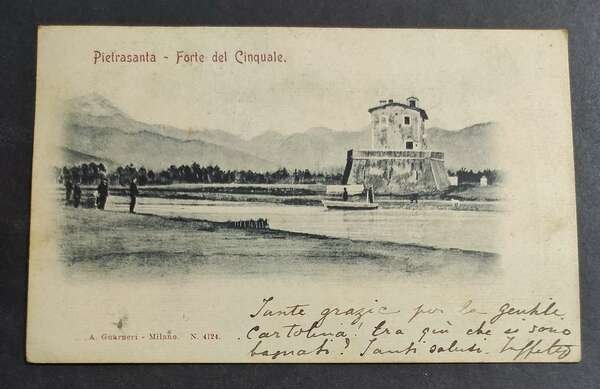 Pietrasanta - Forte del Cinquale.
Tante grazie per la gentile
cartolina! Era giù che si sono
bagnati? Tanti saluti
A. Guarneri - Milano. N. 4124.